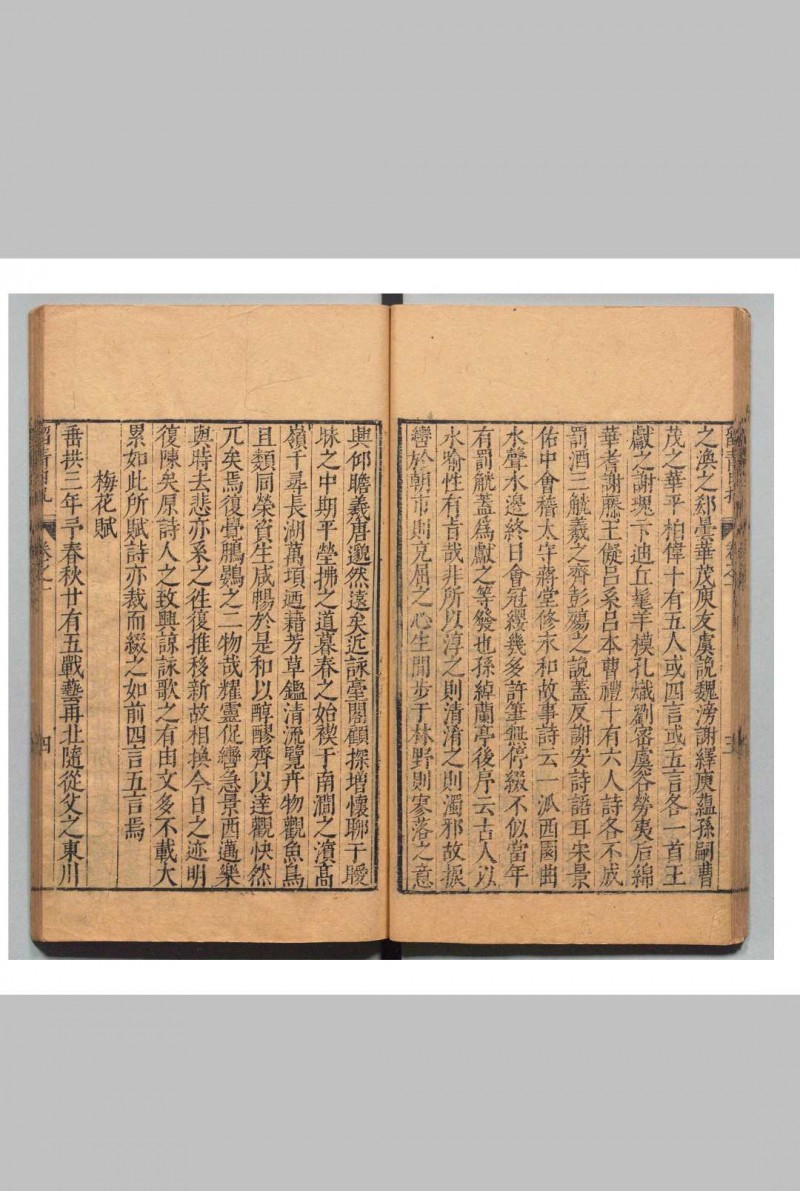 之渙之郄曇華茂庾友虞說魏滂謝繹庾蘊孫嗣曹
茂之華平桓偉十有五人或四言或五言各一首王
獻之謝瑰卞迪丘髦羊模孔熾劉密虞谷勞夷后綿
華耆謝藤王儗呂系呂本曹禮十有六人詩各不成
罰酒三觥羲之齊彭殤之說蓋反謝安詩語耳宋景
佑中會稽太守蔣堂修永和故事詩云一派西園曲
水聲水邊終日會冠纓幾多詩筆無停綴不似當年
有罰觥蓋為獻之等發也孫綽蘭亭後序云古人以
水喻性有旨哉非所以淳之則清淆之則濁邪故振
轡於朝市則充屈之心生閒步于林野則寥落之意
興仰瞻羲唐邈然遠矣近詠臺閣顧探增懷聊于曖
昧之中期乎瑩拂之道暮春之始禊于南澗之濱高
嶺千尋長湖萬頃迺藉芳草鑑清流覽卉物觀魚鳥
且類同榮資生咸暢於是和以醇醪齊以達觀快然
兀矣焉復覺鵬鷃之二物哉耀靈促轡急景西邁樂
與時去悲亦系之往復推移新故相換今日之迹明
復陳矣原詩人之致興諒詠歌之有由文多不載大
累如此所賦詩亦裁而綴之如前四言五言焉
梅花賦
垂拱三年予春秋廿有五戰藝再北隨從父之東川
卷之一
三
卷之一
四